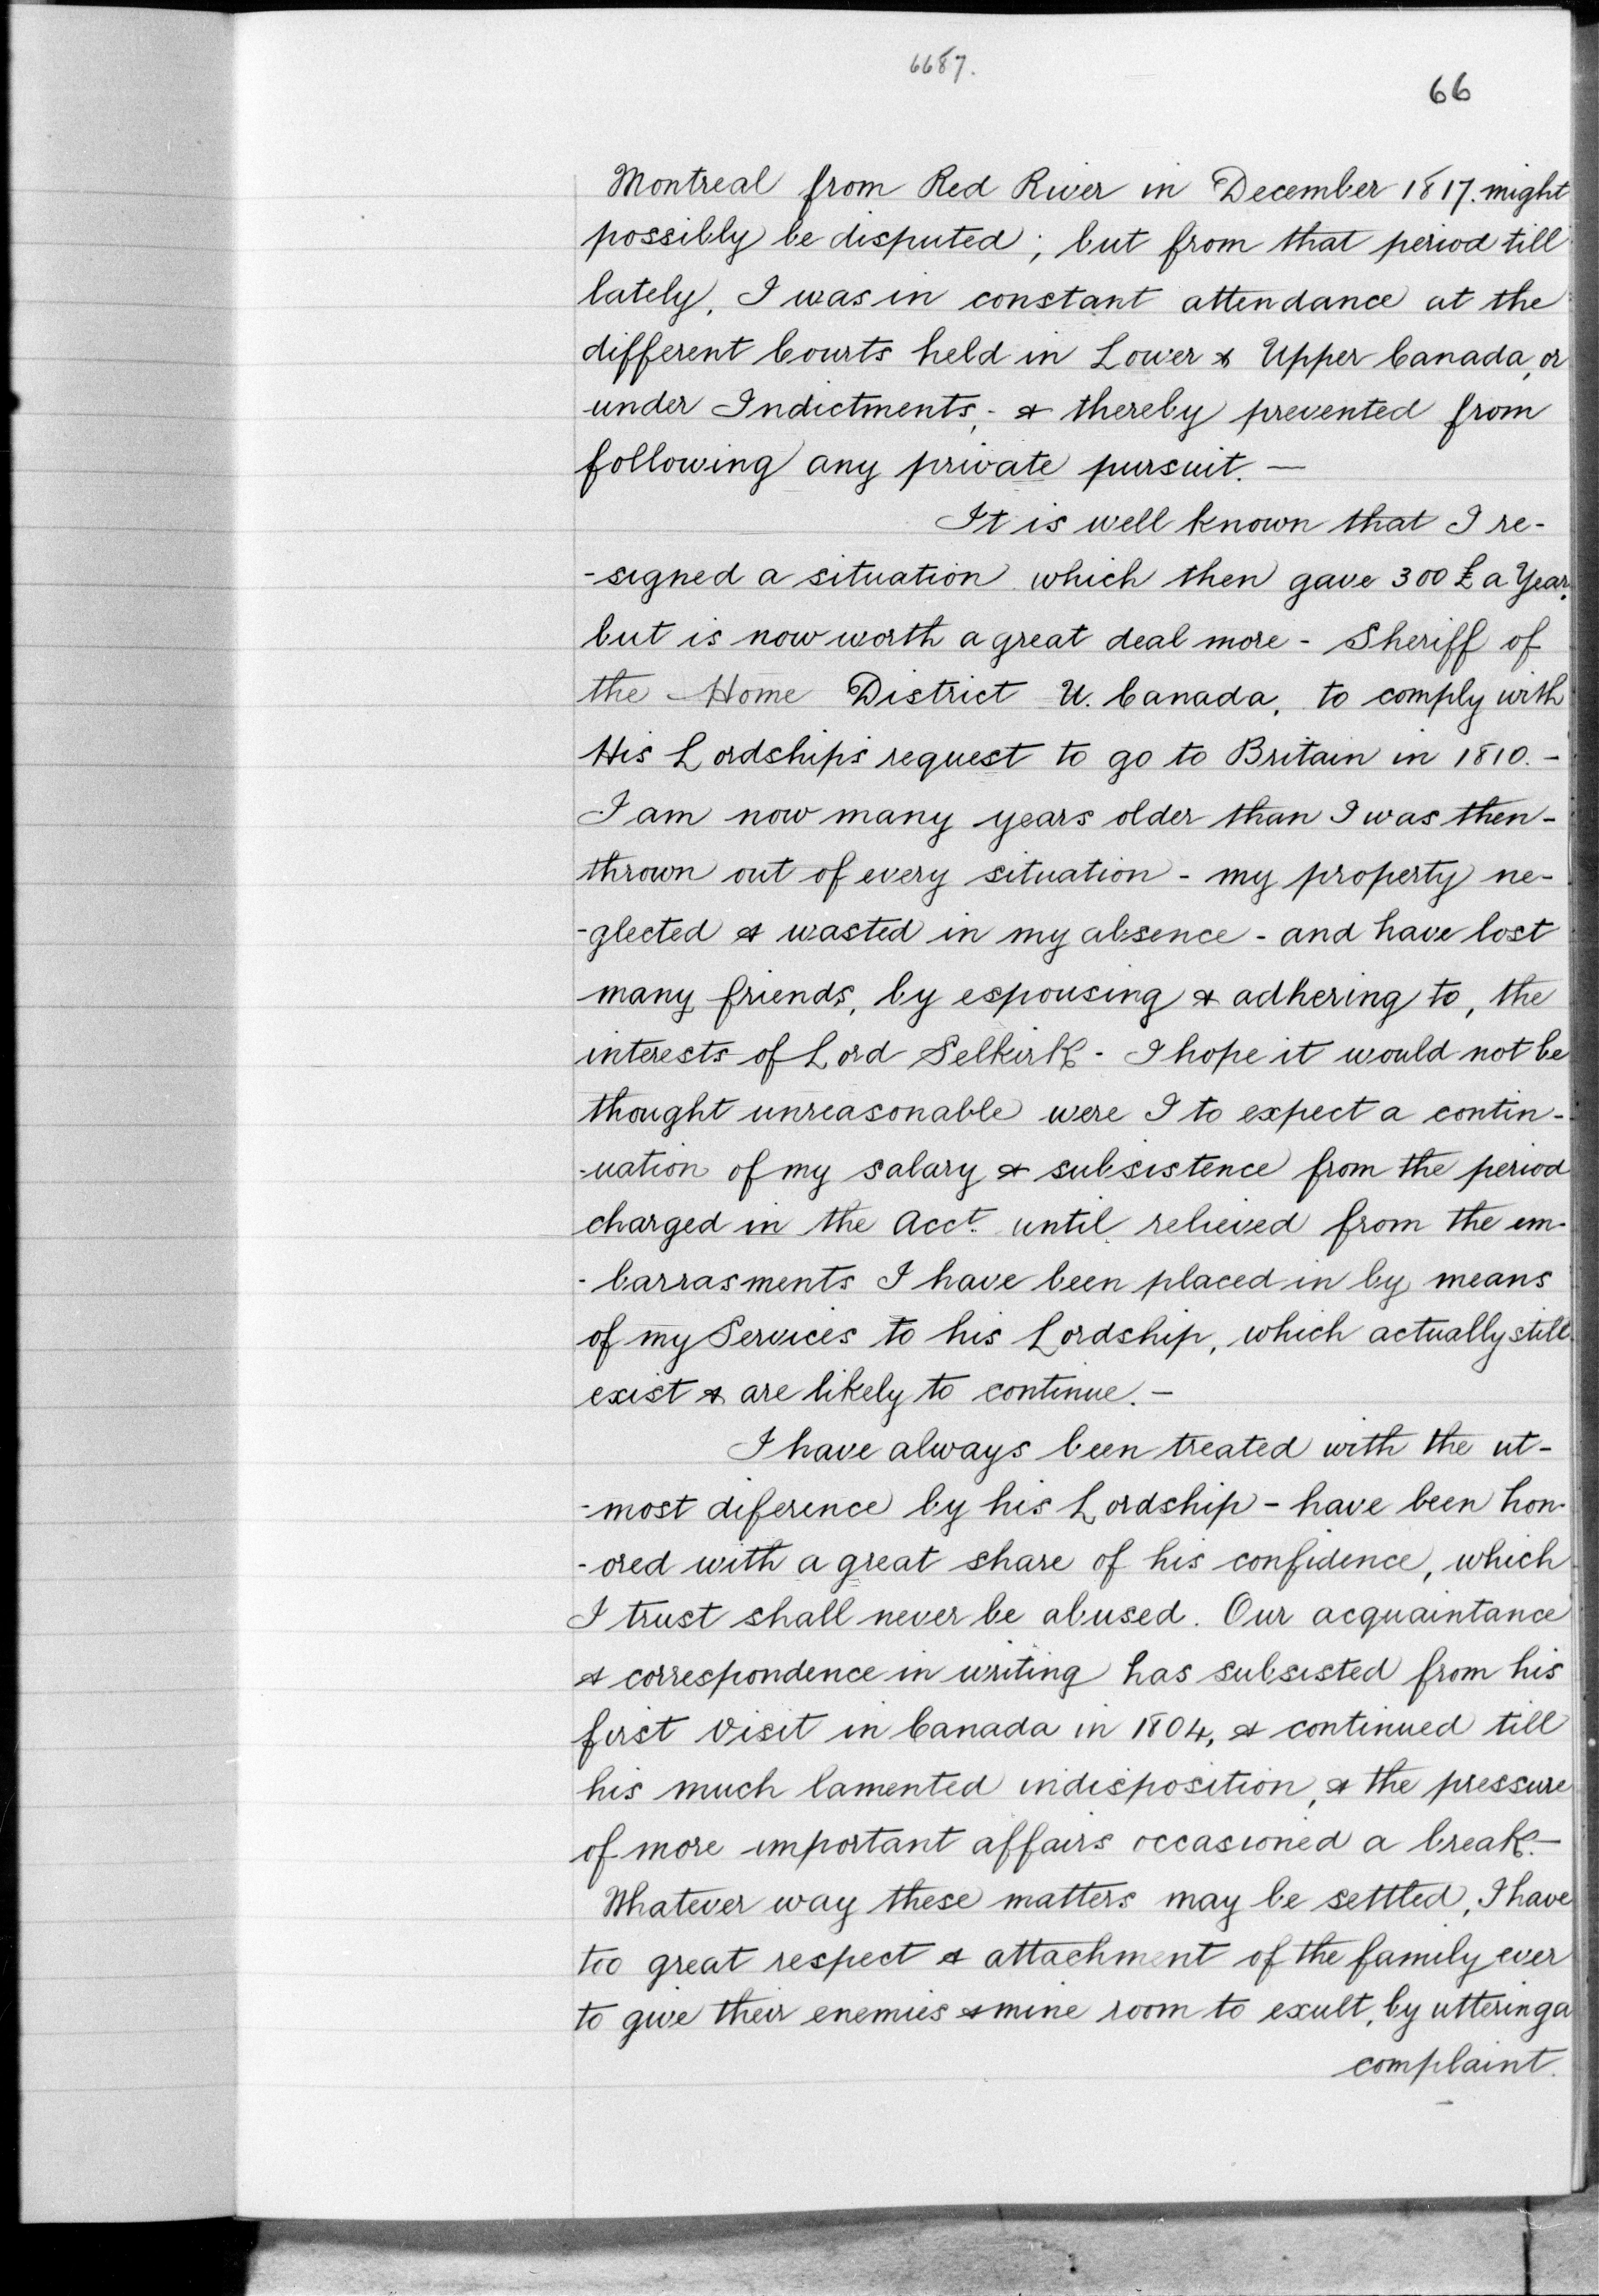 6687.
66
Montreal from Red River in December 1817. might
possibly be disputed; but from that period till
lately, I was in constant attendance at the
different Courts held in Lower & Upper Canada, or
under Indictments; & thereby prevented from
following any private pursuit. —
It is well known that I re-
-signed a situation which then gave 300 £ a Year,
but is now worth a great deal more - Sheriff of
the Home District U. Canada, to comply with
His Lordship's request to go to Britain in 1810. -
I am now many years older than I was then -
thrown out of every situation - my property ne-
-glected & wasted in my absence - and have lost
many friends, by espousing & adhering to, the
interests of Lord Selkirk - I hope it would not be
thought unreasonable were I to expect a contin-
-uation of my salary & subsistence from the period
charged in the Acct. until relieved from the em-
-barrasments I have been placed in by means
of my Services to his Lordship, which actually still
exist & are likely to continue. -
I have always been treated with the ut-
-most diference by his Lordship - have been hon-
-ored with a great share of his confidence, which
I trust shall never be abused. Our acquaintance
& correspondence in writing has subsisted from his
first visit in Canada in 1804, & continued till
his much lamented indisposition, & the pressure
of more important affairs occasioned a break. -
Whatever way these matters may be settled, I have
too great respect & attachment of the family ever
to give their enemies & mine room to exult, by uttering a
complaint.